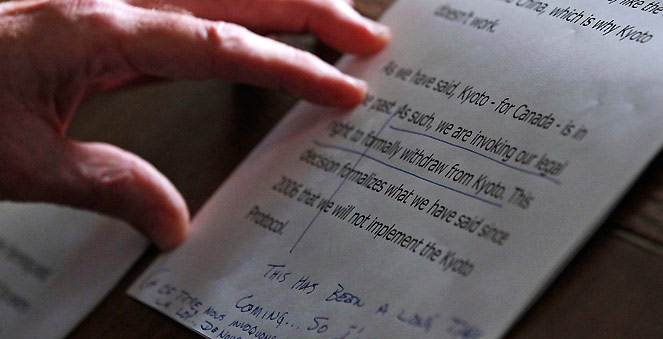 like the
China, which is why Kyoto
doesn't work.
As we have said, Kyoto - for Canada - is in
past. As such, we are invoking our legal
right to formally withdraw from Kyoto. This
decision formalizes what we have said since
2006 that we will not implement the Kyoto
Protocol.
THIS HAS BEEN A LONG TIME
COMING... SO
DE NOUS INVOQUONS
LA LOI. DE